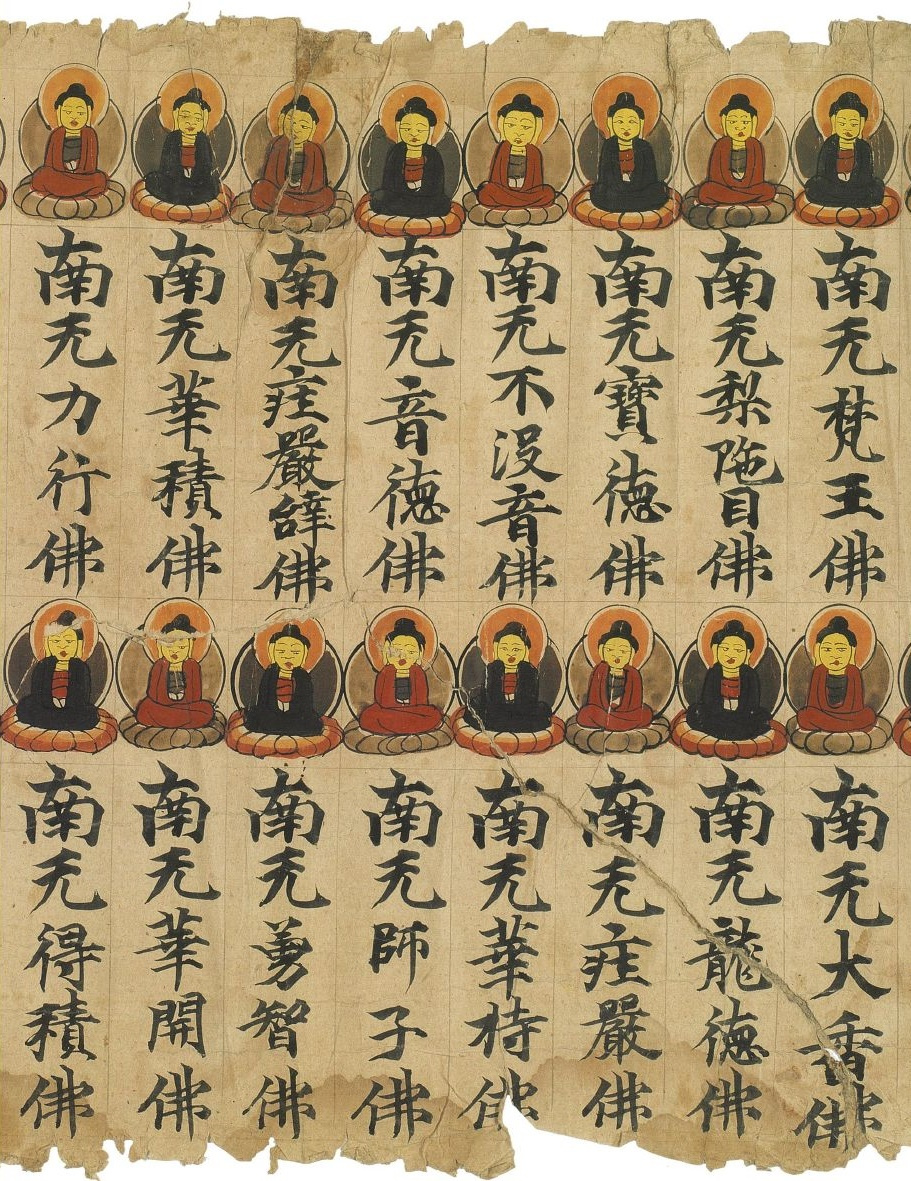 南无梵王佛
南无大香佛
南无梨陁目佛
南无龍德佛
南无寶德佛
南无莊嚴佛
南无不没音佛
南无華持佛
南无音德佛
南无師子佛
南无莊嚴辞佛
南无勇智佛
南无華積佛
南无華開佛
南无力行佛
南无得積佛